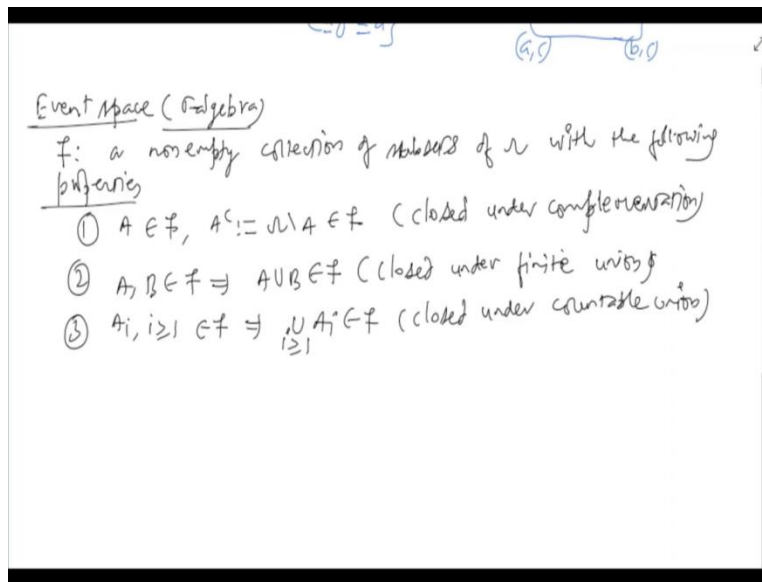 (a,c) (b,c)
Event space (σ-algebra)
F: a nonempty collection of subsets of Ω with the following
properties
① A ∈ F, Aᶜ := Ω\A ∈ F (closed under complementation)
② A, B ∈ F ⇒ A∪B ∈ F (closed under finite unions)
③ Ai, i≥1 ∈ F ⇒ ∪ Ai ∈ F (closed under countable unions)
i≥1